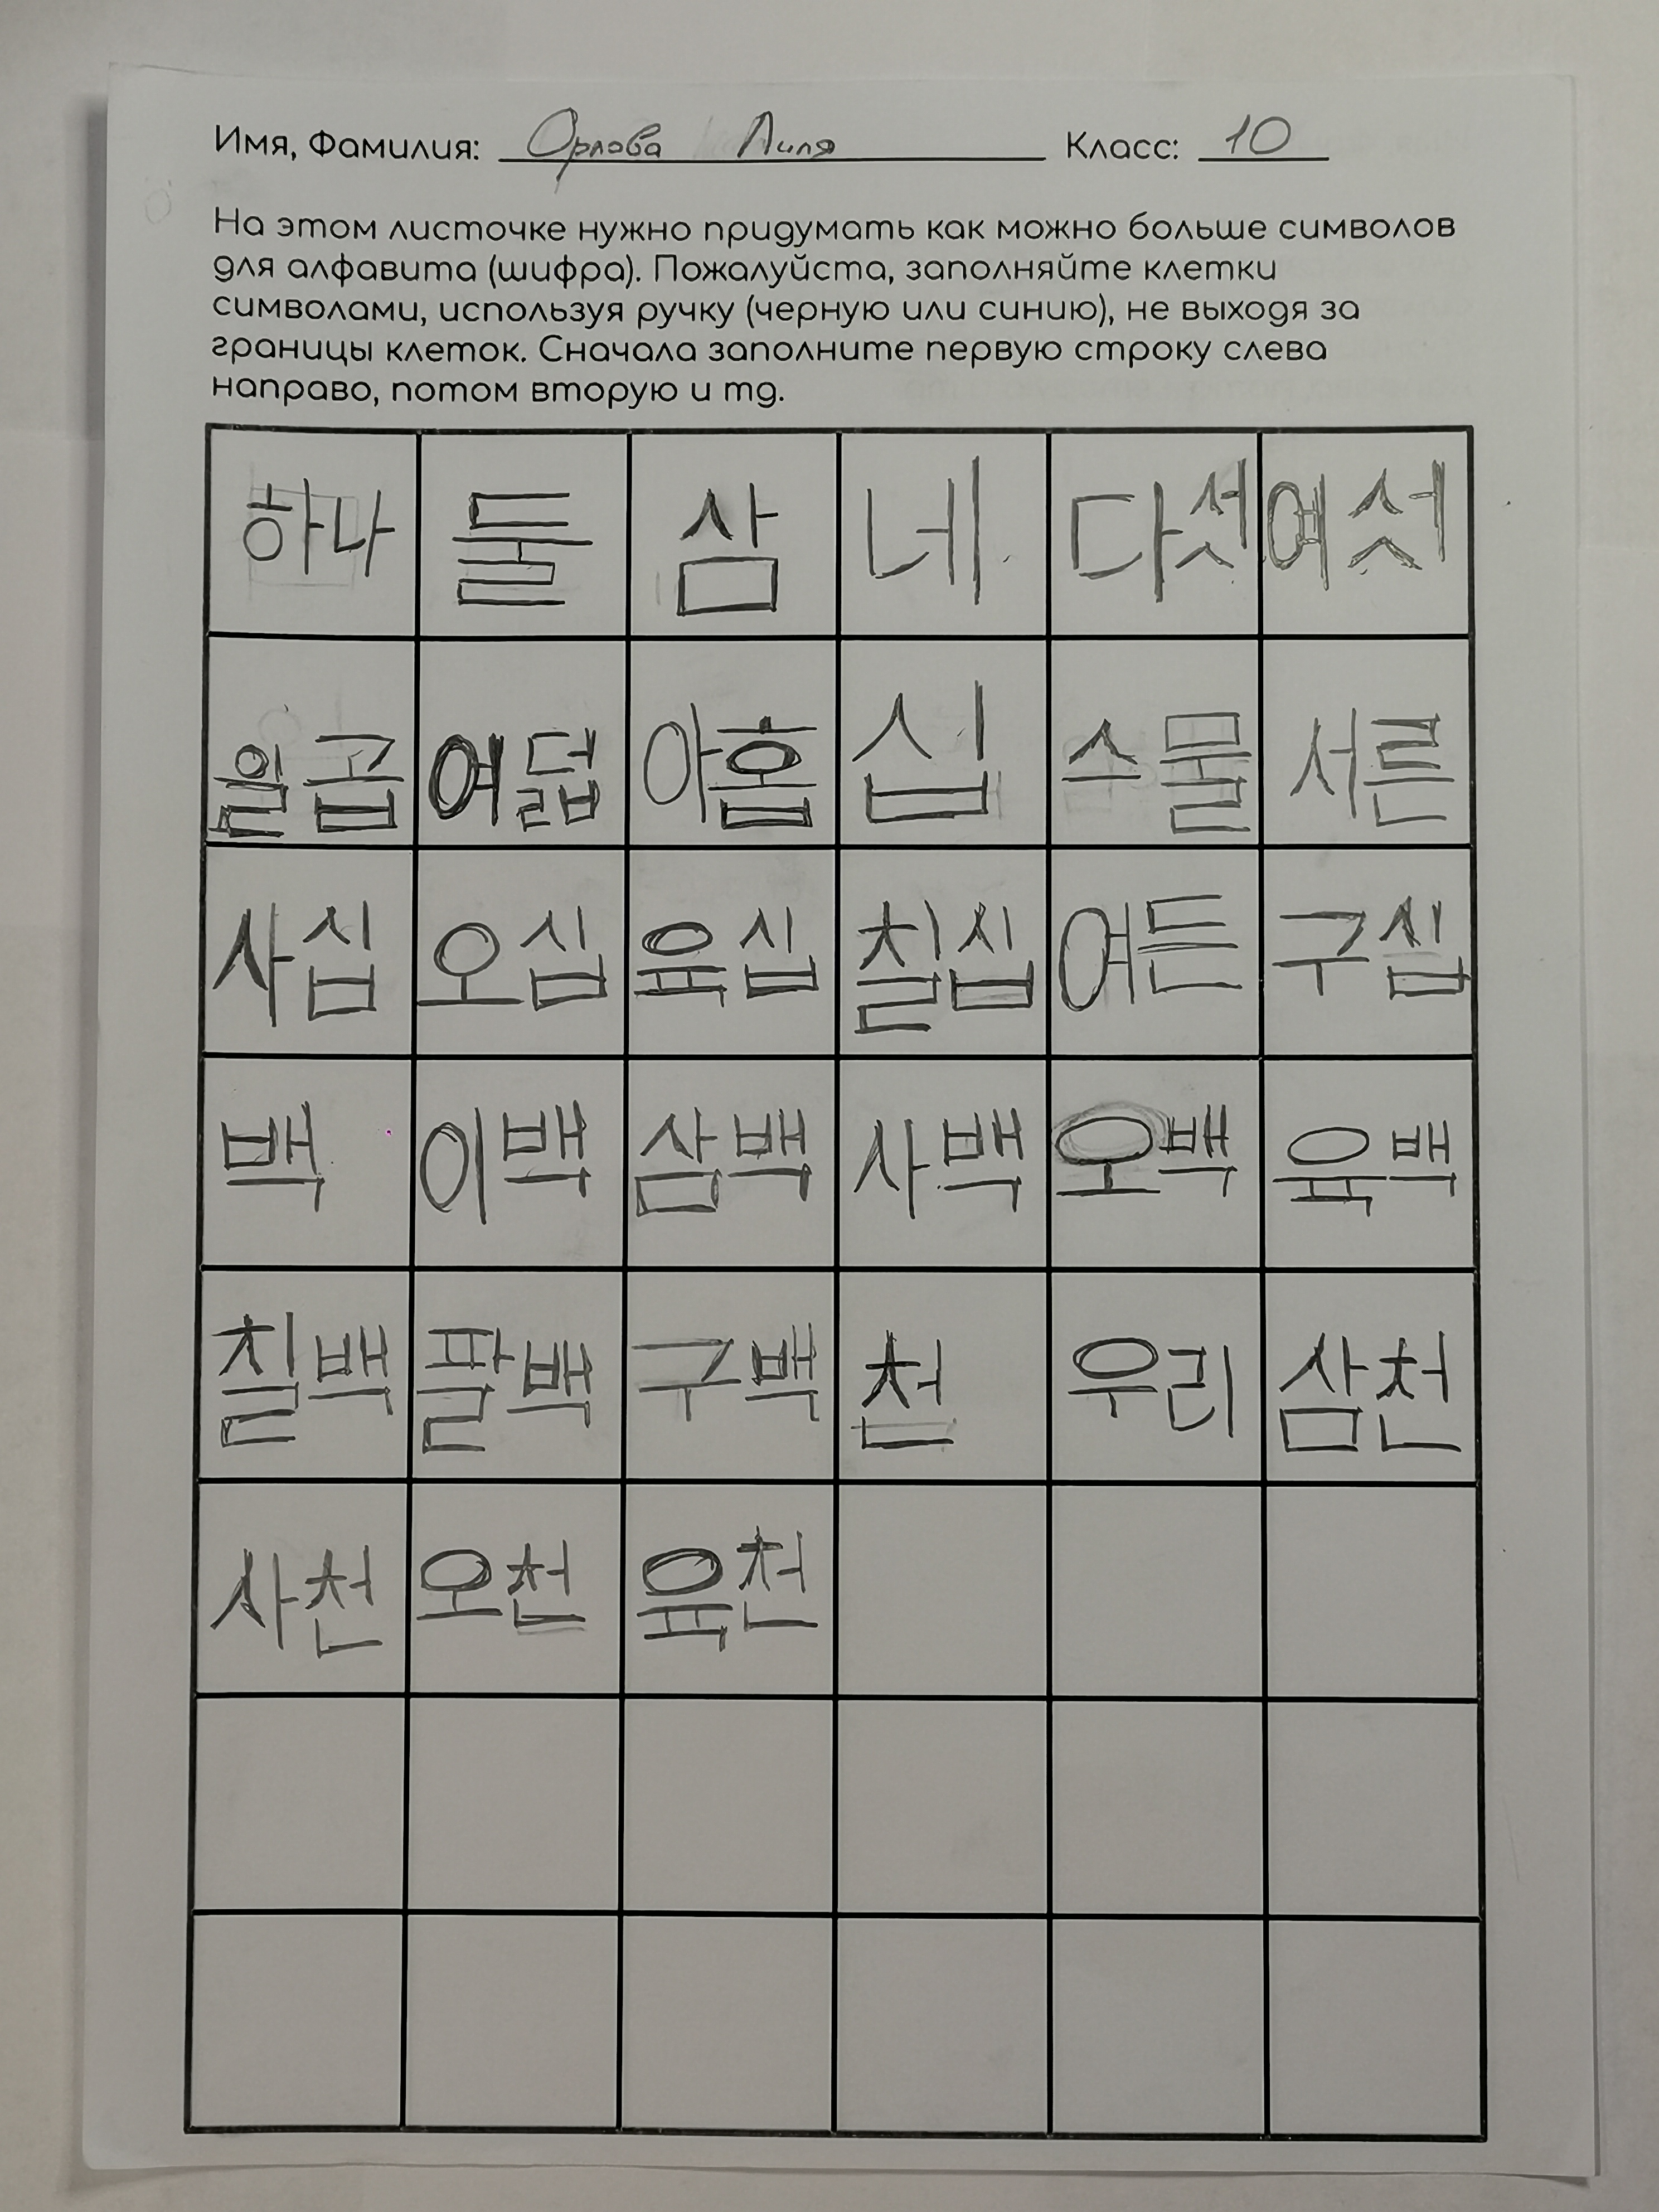 Имя, Фамилия: Орлова Лиля Класс: 10
На этом листочке нужно придумать как можно больше символов
для алфавита (шифра). Пожалуйста, заполняйте клетки
символами, используя ручку (черную или синию), не выходя за
границы клеток. Сначала заполните первую строку слева
направо, потом вторую и тд.
하나 둘 삼 네 다섯 예섯
일곱 여덟 아홉 십 스물 서른
사십 오십 육십 칠십 여든 구십
백 이백 삼백 사백 오백 육백
칠백 팔백 구백 천 우리 삼천
사천 오천 육천